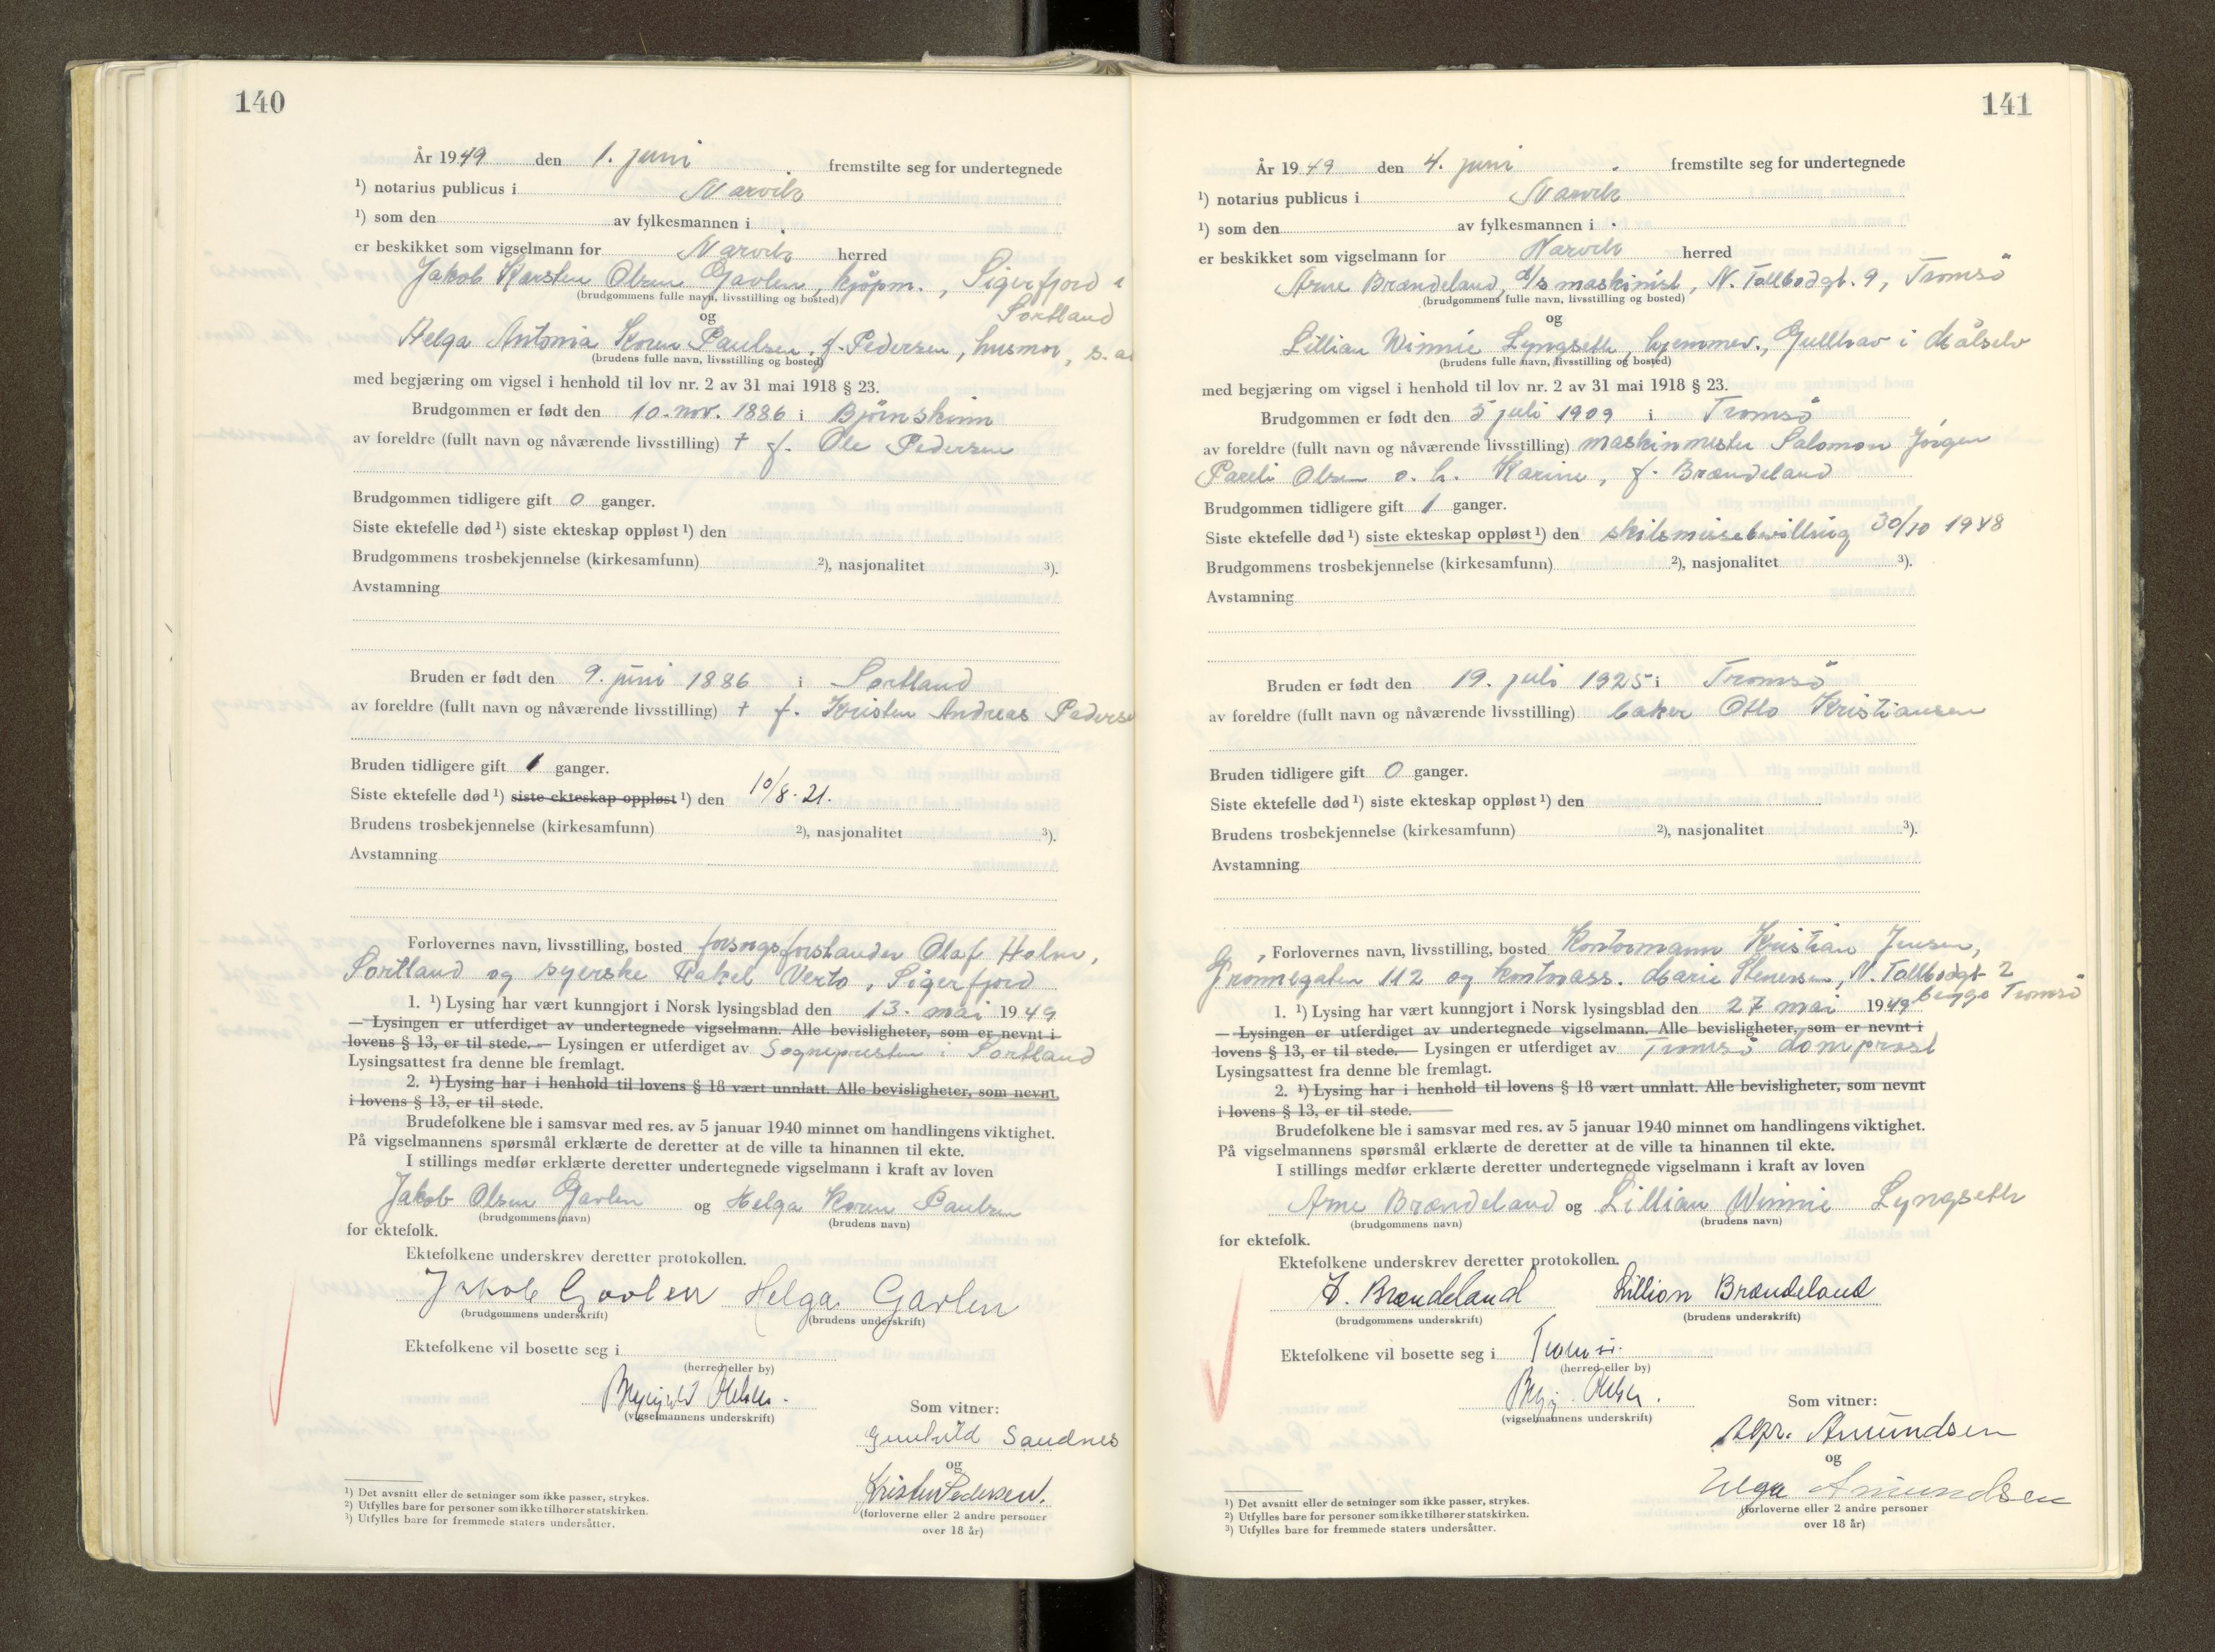 140
År 1949 den 1. juni fremstilte seg for undertegnede
¹) notarius publicus i Narvik
¹) som den av fylkesmannen i
er beskikket som vigselmann for Narvik herred
Jakob Karsten Olsen Gavlen, kjøpm., Sigerfjord i
(brudgommens fulle navn, livsstilling og bosted)
Sortland
og
Helga Antonia Koren Paulsen, f. Pedersen, husmor, s. a
(brudens fulle navn, livsstilling og bosted)
med begjæring om vigsel i henhold til lov nr. 2 av 31 mai 1918 § 23.
Brudgommen er født den 10. nov. 1886 i Bjørnskinn
av foreldre (fullt navn og nåværende livsstilling) + f. Ole Pedersen
Brudgommen tidligere gift 0 ganger.
Siste ektefelle død ¹) siste ekteskap oppløst ¹) den
Brudgommens trosbekjennelse (kirkesamfunn) ²), nasjonalitet ³).
Avstamning
Bruden er født den 9. juni 1886 i Sortland
av foreldre (fullt navn og nåværende livsstilling) + f. Kristen Andreas Pederse
Bruden tidligere gift 1 ganger.
Siste ektefelle død ¹) siste ekteskap oppløst ¹) den 10/8. 21.
Brudens trosbekjennelse (kirkesamfunn) ²), nasjonalitet ³).
Avstamning
Forlovernes navn, livsstilling, bosted forsorgsforstander Olaf Holm,
Sortland og syerske Rakel Verto, Sigerfjord
1. ¹) Lysing har vært kunngjort i Norsk lysingsblad den 13. mai 1949
— Lysingen er utferdiget av undertegnede vigselmann. Alle bevisligheter, som er nevnt i
lovens § 13, er til stede. — Lysingen er utferdiget av Sognepresten i Sortland
Lysingsattest fra denne ble fremlagt.
2. ¹) Lysing har i henhold til lovens § 18 vært unnlatt. Alle bevisligheter, som nevnt
i lovens § 13, er til stede.
Brudefolkene ble i samsvar med res. av 5 januar 1940 minnet om handlingens viktighet.
På vigselmannens spørsmål erklærte de deretter at de ville ta hinannen til ekte.
I stillings medfør erklærte deretter undertegnede vigselmann i kraft av loven
Jakob Olsen Gavlen og Helga Koren Paulsen
(brudgommens navn) (brudens navn)
for ektefolk.
Ektefolkene underskrev deretter protokollen.
Jakob Gavlen Helga Gavlen
(brudgommens underskrift) (brudens underskrift)
Ektefolkene vil bosette seg i
(herred eller by)
(vigselmannens underskrift)
Som vitner:
Gunhild Sandnes
og
Kristen Pedersen.
(forloverne eller 2 andre personer
over 18 år)
¹) Det avsnitt eller de setninger som ikke passer, strykes.
²) Utfylles bare for personer som ikke tilhører statskirken.
³) Utfylles bare for fremmede staters undersåtter.
141
År 1949 den 4. juni fremstilte seg for undertegnede
¹) notarius publicus i Narvik
¹) som den av fylkesmannen i
er beskikket som vigselmann for Narvik herred
Arne Brændeland, d/s maskinist, N. Tollbodgt. 9, Tromsø
(brudgommens fulle navn, livsstilling og bosted)
og
Lillian Winnie Lyngseth, hjemmev., Gullhav i Målselv
(brudens fulle navn, livsstilling og bosted)
med begjæring om vigsel i henhold til lov nr. 2 av 31 mai 1918 § 23.
Brudgommen er født den 5 juli 1909 i Tromsø
av foreldre (fullt navn og nåværende livsstilling) maskinmester Salomon Jørgen
Pareli Olsen o. h. Karine, f. Brændeland
Brudgommen tidligere gift 1 ganger.
Siste ektefelle død ¹) siste ekteskap oppløst ¹) den skilsmissebevilling 30/10 1948
Brudgommens trosbekjennelse (kirkesamfunn) ²), nasjonalitet ³).
Avstamning
Bruden er født den 19. juli 1925 i Tromsø
av foreldre (fullt navn og nåværende livsstilling) baker Otto Kristiansen
Bruden tidligere gift 0 ganger.
Siste ektefelle død ¹) siste ekteskap oppløst ¹) den
Brudens trosbekjennelse (kirkesamfunn) ²), nasjonalitet ³).
Avstamning
Forlovernes navn, livsstilling, bosted Kontormann Kristian Jensen,
Grønnegaten 112 og kontorass. Marie Stenersen, N. Tollbodgt 2
begge Tromsø
1. ¹) Lysing har vært kunngjort i Norsk lysingsblad den 27 mai 1949
— Lysingen er utferdiget av undertegnede vigselmann. Alle bevisligheter, som er nevnt i
lovens § 13, er til stede. — Lysingen er utferdiget av Tromsø domprost
Lysingsattest fra denne ble fremlagt.
2. ¹) Lysing har i henhold til lovens § 18 vært unnlatt. Alle bevisligheter, som nevnt
i lovens § 13, er til stede.
Brudefolkene ble i samsvar med res. av 5 januar 1940 minnet om handlingens viktighet.
På vigselmannens spørsmål erklærte de deretter at de ville ta hinannen til ekte.
I stillings medfør erklærte deretter undertegnede vigselmann i kraft av loven
Arne Brændeland og Lillian Winnie Lyngseth
(brudgommens navn) (brudens navn)
for ektefolk.
Ektefolkene underskrev deretter protokollen.
A. Brændeland Lillian Brændeland
(brudgommens underskrift) (brudens underskrift)
Ektefolkene vil bosette seg i Tromsø.
(herred eller by)
(vigselmannens underskrift)
Som vitner:
Alpr. Amundsen
og
Helga Amundsen
(forloverne eller 2 andre personer
over 18 år)
¹) Det avsnitt eller de setninger som ikke passer, strykes.
²) Utfylles bare for personer som ikke tilhører statskirken.
³) Utfylles bare for fremmede staters undersåtter.